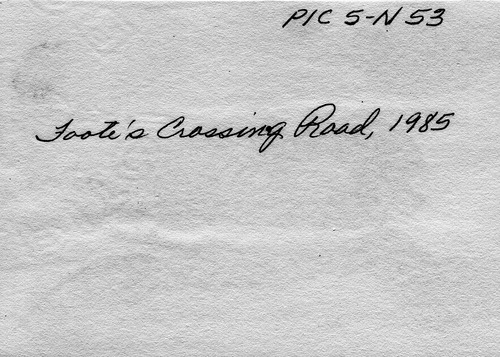 PIC 5-N 53
Foote's Crossing Road, 1985